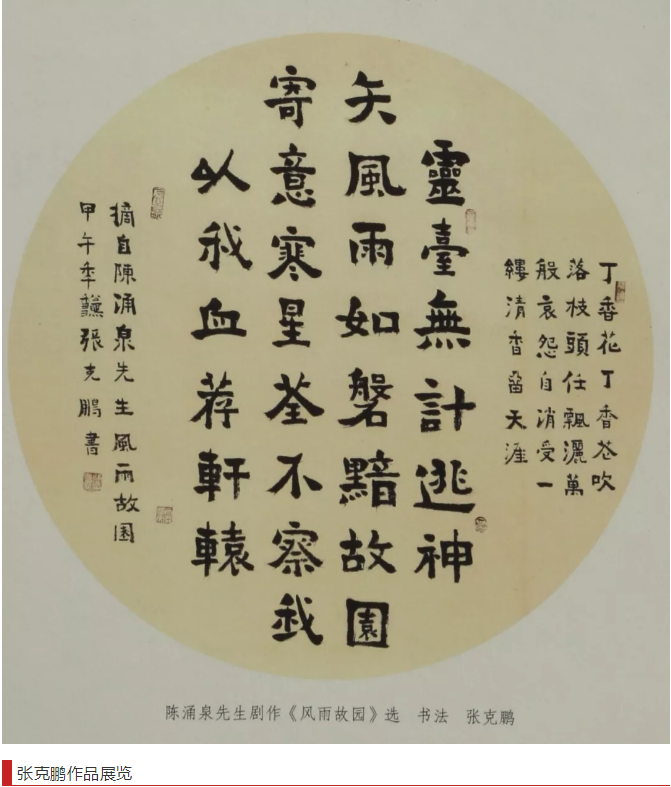 丁香花丁香花吹
落枝頭任飄灑萬
般哀怨自消受一
縷清香留天涯
靈臺無計逃神
矢風雨如磐黯故園
寄意寒星荃不察我
以我血荐軒轅
摘自陳涌泉先生風雨故園
甲午年張克鵬書
陈涌泉先生剧作《风雨故园》选 书法 张克鹏
张克鹏作品展览